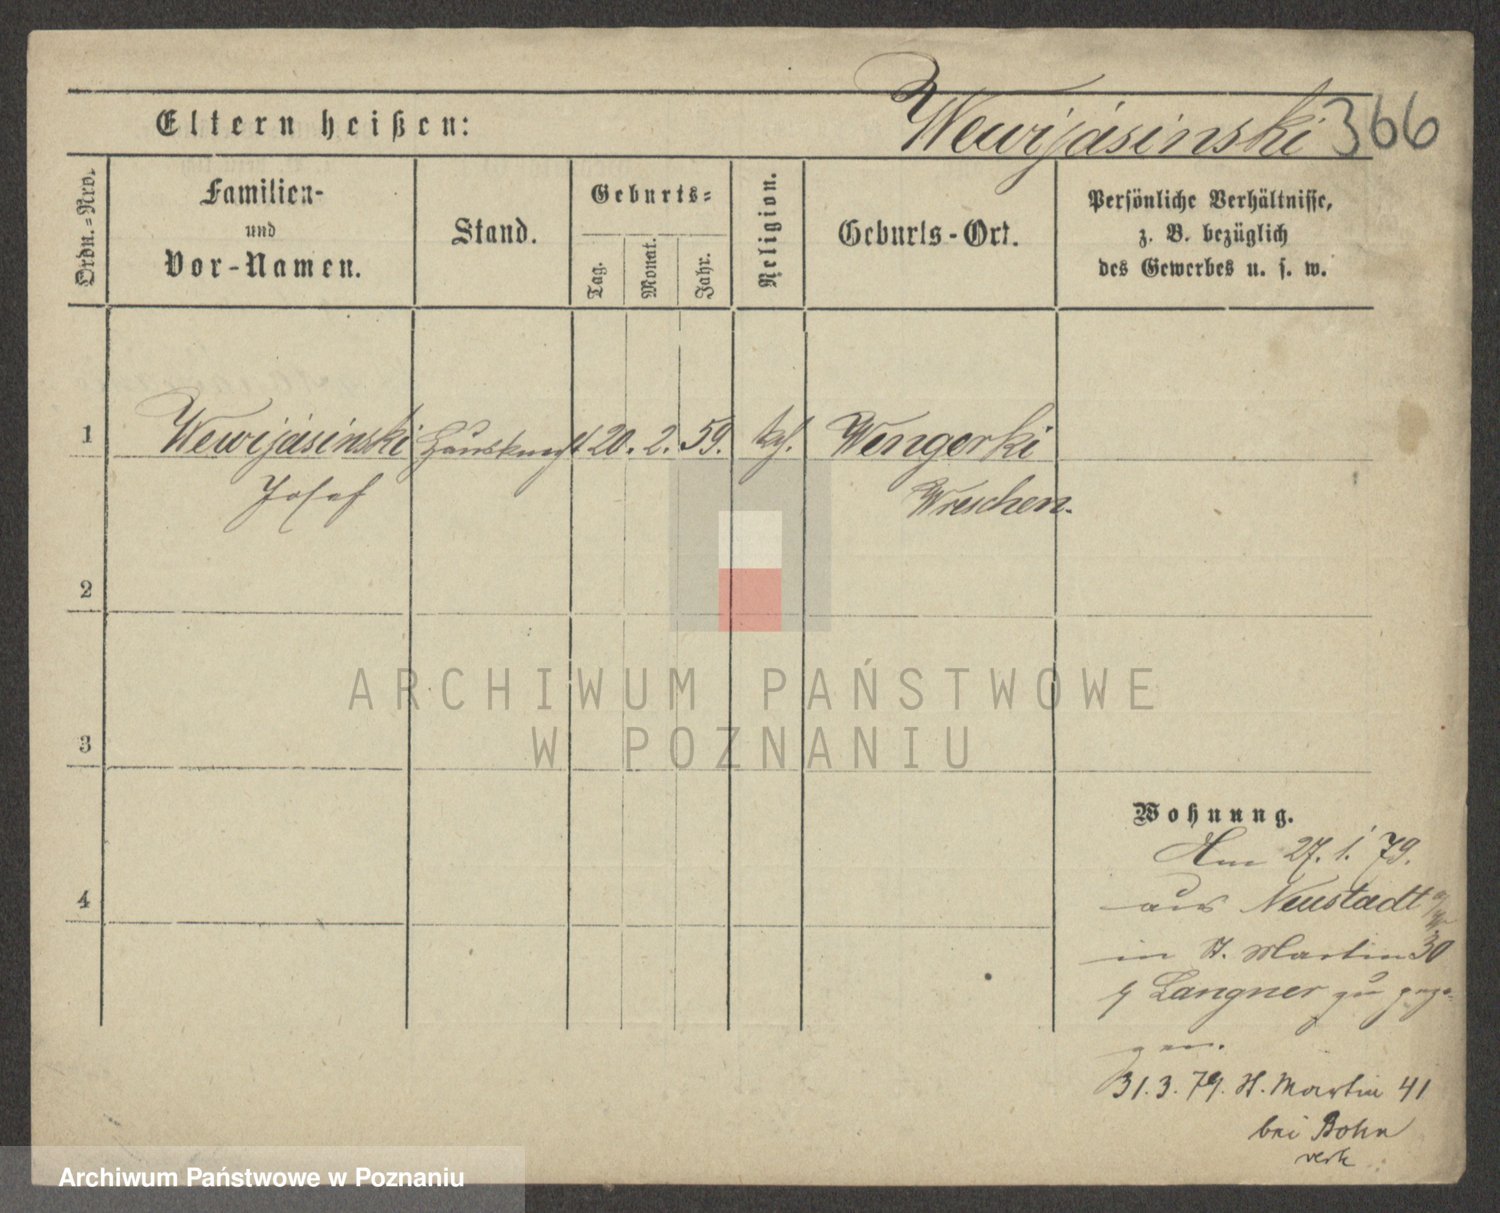 Eltern heißen:
Wewijásinski 366
Ordn.=Nro.
Familien-
und
Vor-Namen.
Stand.
Geburts=
Tag.
Monat.
Jahr.
Religion.
Geburts-Ort.
Persönliche Verhältnisse,
z. B. bezüglich
des Gewerbes u. s. w.
1 Wewijásinski Hausknecht 20. 2. 59. kth. Wengerki
Josef Wreschen.
2
ARCHIWUM PAŃSTWOWE
W POZNANIU
3
Wohnung.
Am 27. 1. 79.
4
aus Neustadt
in St. Martin 30
Langner zu gezo-
gen.
31. 3. 79. St. Martin 41
bei Bohn
Archiwum Państwowe w Poznaniu